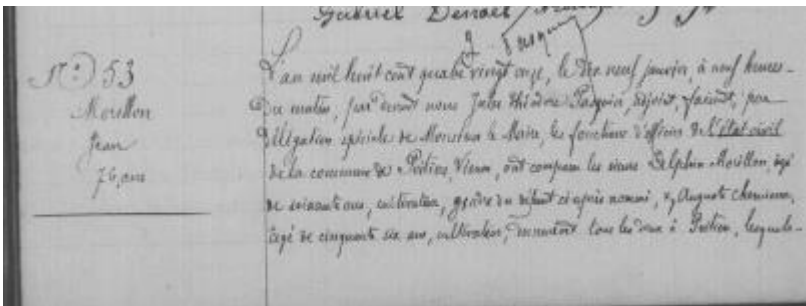 Gabriel Denoel
Pasquier
N° 53
Morillon
Jean
76 ans
L'an mil huit cent quatre vingt onze, le dix neuf janvier, à neuf heures
du matin, par devant nous Jules Théodore Pasquier, adjoint, faisant, par
délégation spéciale de Monsieur le Maire, les fonctions d'officier de l'état civil
de la commune de Poitiers, Vienne, ont comparu les sieurs Delphin Morillon, âgé
de soixante ans, cultivateur, du défunt ci après nommé, & Auguste
âgé de cinquante six ans, cultivateur, demeurant tous les deux à Poitiers, lesquels